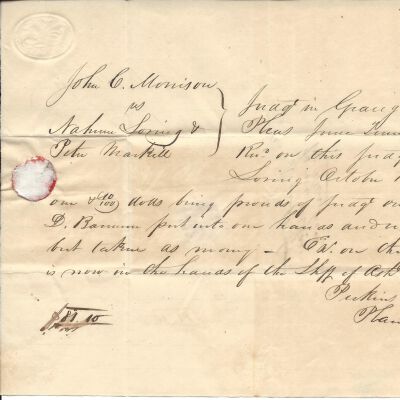 John C. Morrison
vs
Nahum Loring &
Peter Markell
Judgt in Orang
Pleas June
Recd on this Judg
Loring October 1
one & 10/100 dols being proceeds of judgt
D. Barnum put into our hands
but taken as money - Exn. on th
is now in the hands of the Shff of
Perkins
Plain
$81.10